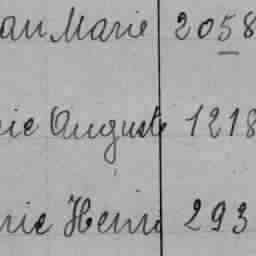 an Marie 2058
rie Auguste 1218
rie Henri 293